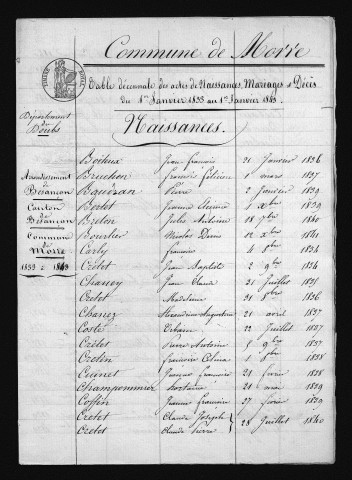 Commune de Morre
Table décennale des actes de Naissances, Mariages et Décès
du 1er Janvier 1833 au 1er Janvier 1843.
Département
du
Doubs
Naissances.
Arrondissement
de
Besançon
Canton
de
Besançon
Commune
de
Morre
1833 à 1843
Boiteux Jean francois 21 Janvier 1836
Bruchon francois félicien 1 mars 1837
Baudran Pierre 2 Janvier 1839
Bertet Jeanne 5 xbre 1839
Breton Jules Antoine 08 7bre 1840
Bourlier Nicolas Denis 12 xbre 1841
Carly francois 4 8bre 1834
Cretet Jean Baptiste 2 9bre 1834
Chanoy Jean Claude 21 Juillet 1835
Cretet Madeleine 21 8bre 1836
Chanez Augustine 21 avril 1837
Coste 22 Juillet 1837
Cretet Pierre Antoine 5 9bre 1837
Cretin francoise 1 8bre 1838
Cuinet Jacques francois 21 fevrier 1838
Champonnier hortense 21 mai 1839
Coffin Jeanne francoise 27 fevrier 1839
Cretet Claude Joseph
Cretet Claude Pierre 28 Juillet 1840